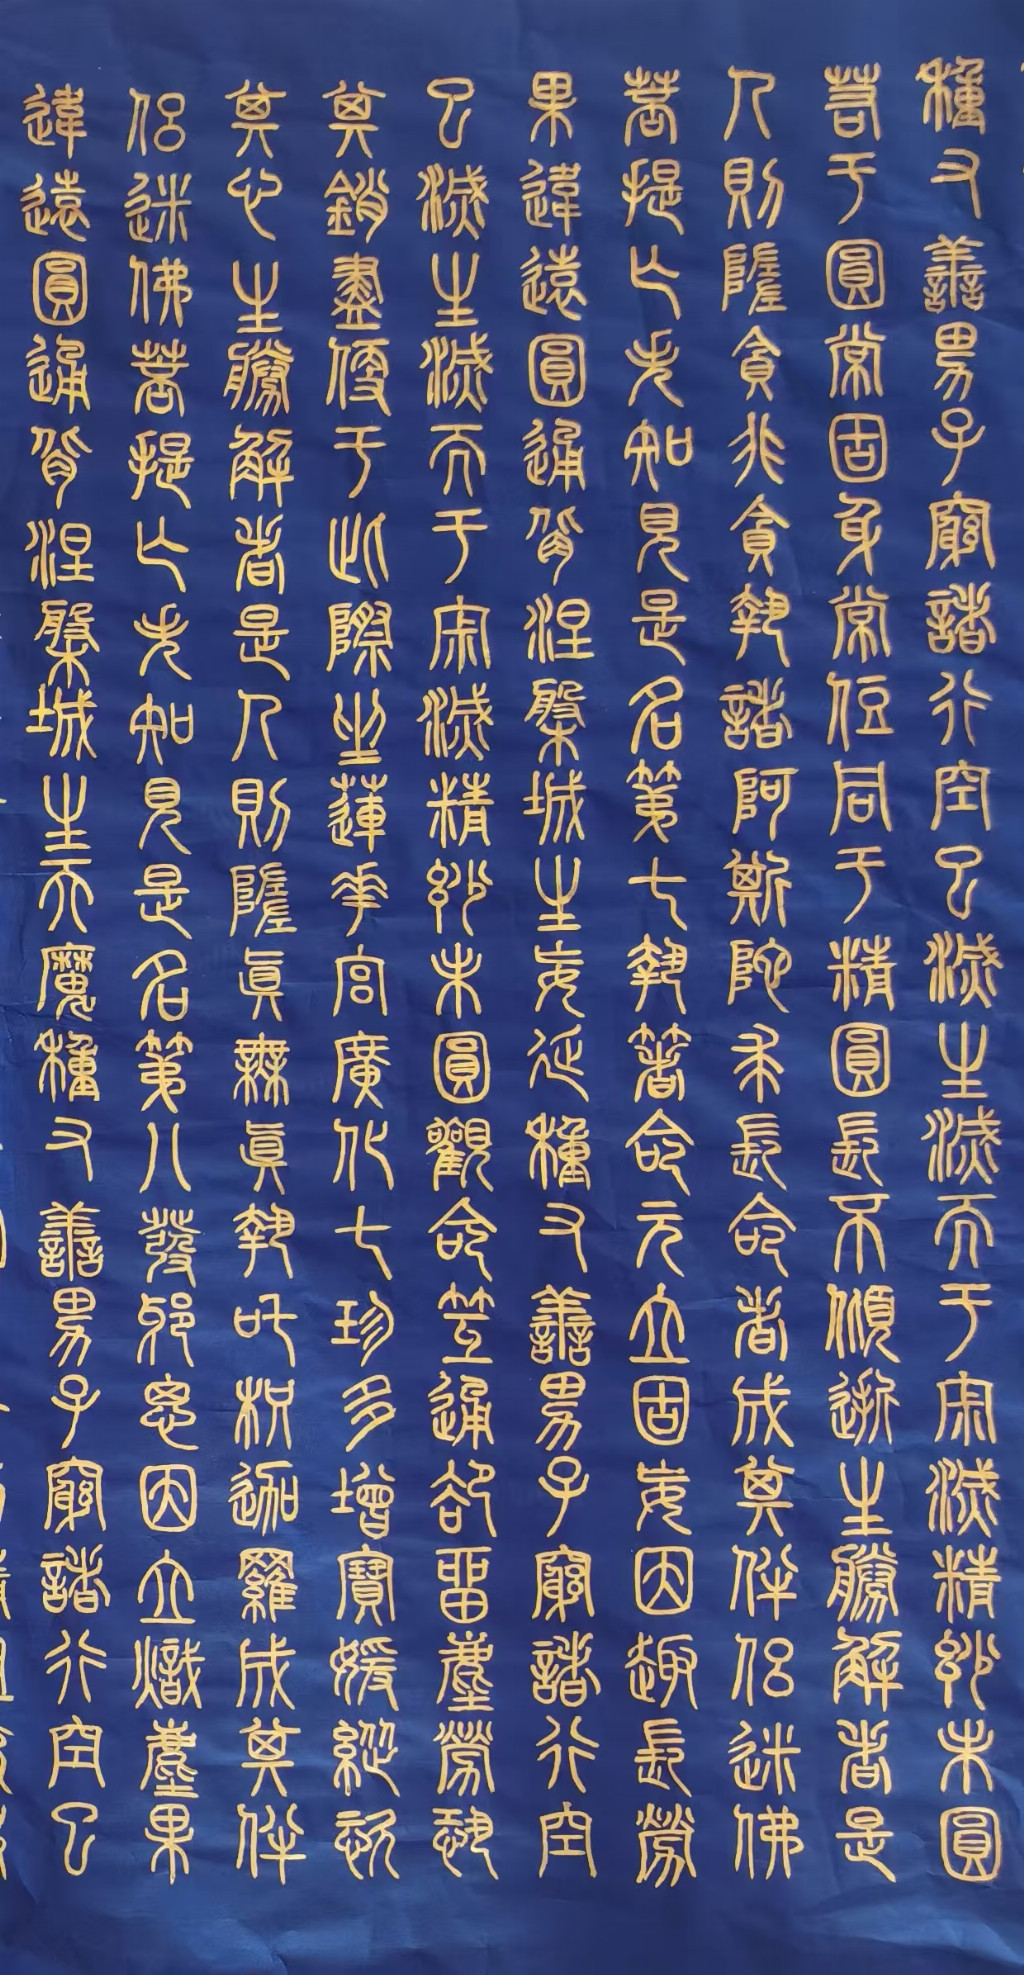 種又善男子窮諸行空已滅生滅而于寂滅精妙未圓
若于圓常固身常住同于精圓長不傾逝生勝解者是
人則墮貪非貪執諸阿斯陀求長命者成其伴侶迷佛
菩提亡失知見是名第七執著命元立固妄因趣長勞
果違遠圓通背涅槃城生妄延種又善男子窮諸行空
已滅生滅而于寂滅精妙未圓觀命互通卻留塵勞恐
其銷盡便于此際坐蓮華宮廣化七珍多增寶媛縱恣
其心生勝解者是人則墮真無真執吒枳迦羅成其伴
侶迷佛菩提亡失知見是名第八發邪思因立熾塵果
違遠圓通背涅槃城生天魔種又善男子窮諸行空已